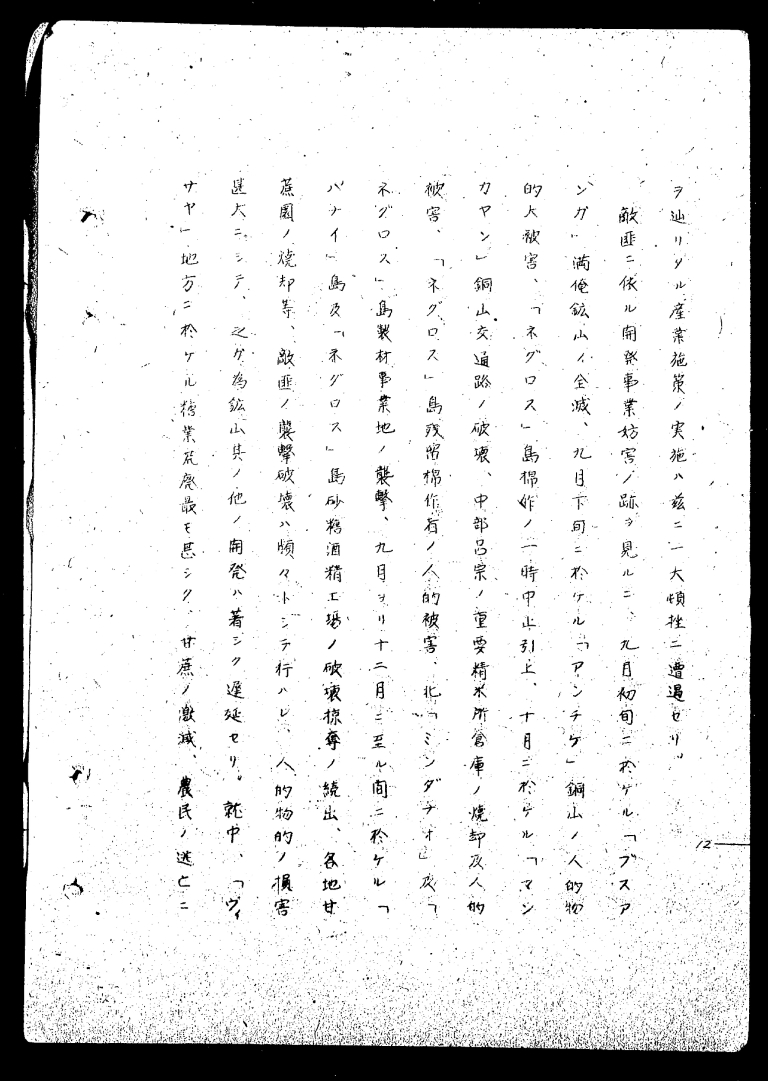 ヲ辿リタル産業施策ノ実施ハ茲ニ一大頓挫ニ遭遇セリ。
敵匪ニ依ル開発事業妨害ノ跡ヲ見ルニ、九月初旬ニ於ケル「ブスア
ンガ」満俺鉱山ノ全滅、九月下旬ニ於ケル「アンチケ」銅山ノ人的物
的大被害、「ネグロス」島棉作ノ一時中止引上、十月ニ於ケル「マン
カヤン」銅山交通路ノ破壊、中部呂宋ノ重要精米所倉庫ノ焼却及人的
被害、「ネグロス」島残留棉作者ノ人的被害、北「ミンダナオ」及「
ネグロス」島製材事業地ノ襲撃、九月ヨリ十二月ニ至ル間ニ於ケル「
パナイ」島及「ネグロス」島砂糖酒精工場ノ破壊掠奪ノ続出、各地甘
蔗園ノ焼却等、敵匪ノ襲撃破壊ハ頻々トシテ行ハレ、人的物的ノ損害
甚大ニシテ、之ガ為鉱山其ノ他ノ開発ハ著シク遅延セリ。就中、「ヴィ
サヤ」地方ニ於ケル糖業荒廃最モ甚シク、甘蔗ノ激減、農民ノ逃亡ニ
12